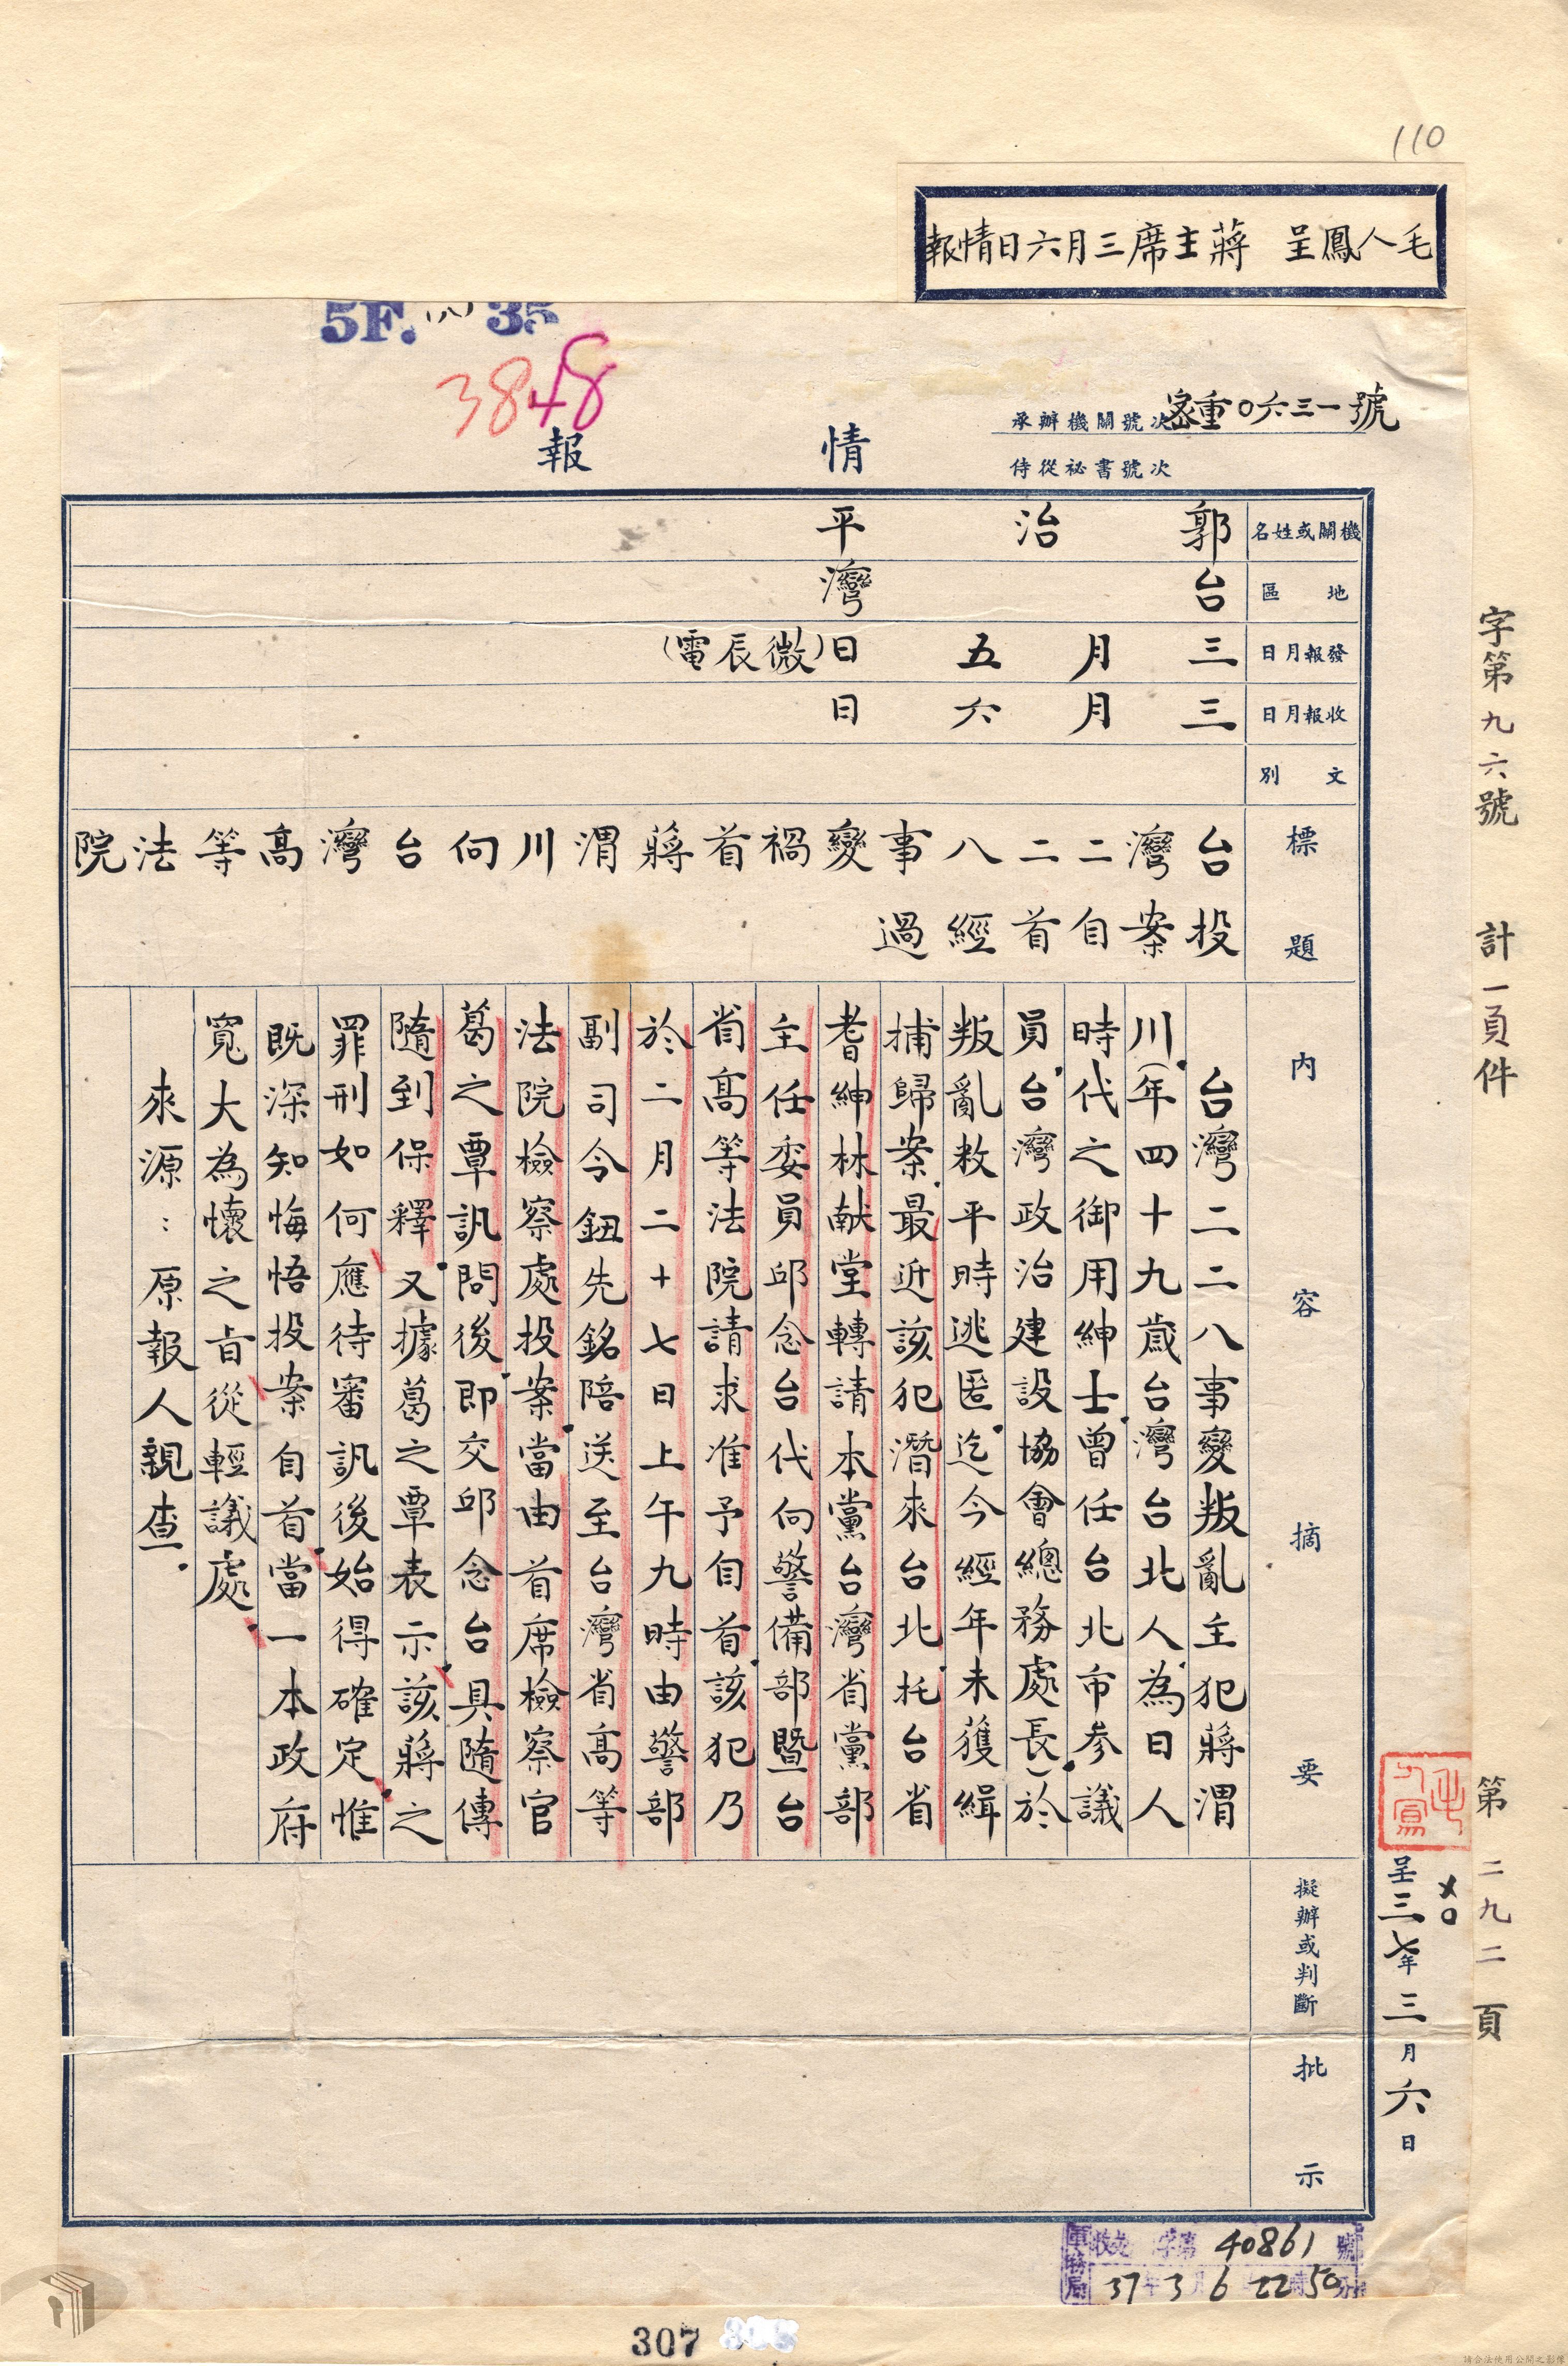 110
毛人鳳呈 蔣主席三月六日情報
5F. (八) 35
3848
承辦機關號次 密重〇六三一號
侍從祕書號次
情報
機關或姓名 郭治平
地區 台灣
發報月日 三月五日(微辰電)
收報月日 三月六日
文別
標題 台灣二二八事變禍首蔣渭川向台灣高等法院
投案自首經過
內容摘要
台灣二二八事變叛亂主犯蔣渭
川(年四十九歲台灣台北人為日人
時代之御用紳士曾任台北市參議
員台灣政治建設協會總務處長)於
叛亂敉平時逃匿迄今經年未獲緝
捕歸案最近該犯潛來台北托台省
耆紳林献堂轉請本黨台灣省黨部
主任委員邱念台代向警備部暨台
省高等法院請求准予自首該犯乃
於二月二十七日上午九時由警部
副司令鈕先銘陪送至台灣省高等
法院檢察處投案當由首席檢察官
葛之覃訊問後即交邱念台具隨傳
隨到保釋又據葛之覃表示該蔣之
罪刑如何應待審訊後始得確定惟
既深知悔悟投案自首當一本政府
寬大為懷之旨從輕議處
來源：原報人親查
擬辦或判斷
批示
呈 三七年三月六日
字第九六號 計一頁件 第二九二頁
軍務局 收文 字第 40861 號
37年3月6日22時50分
307
請合法使用公開之影像